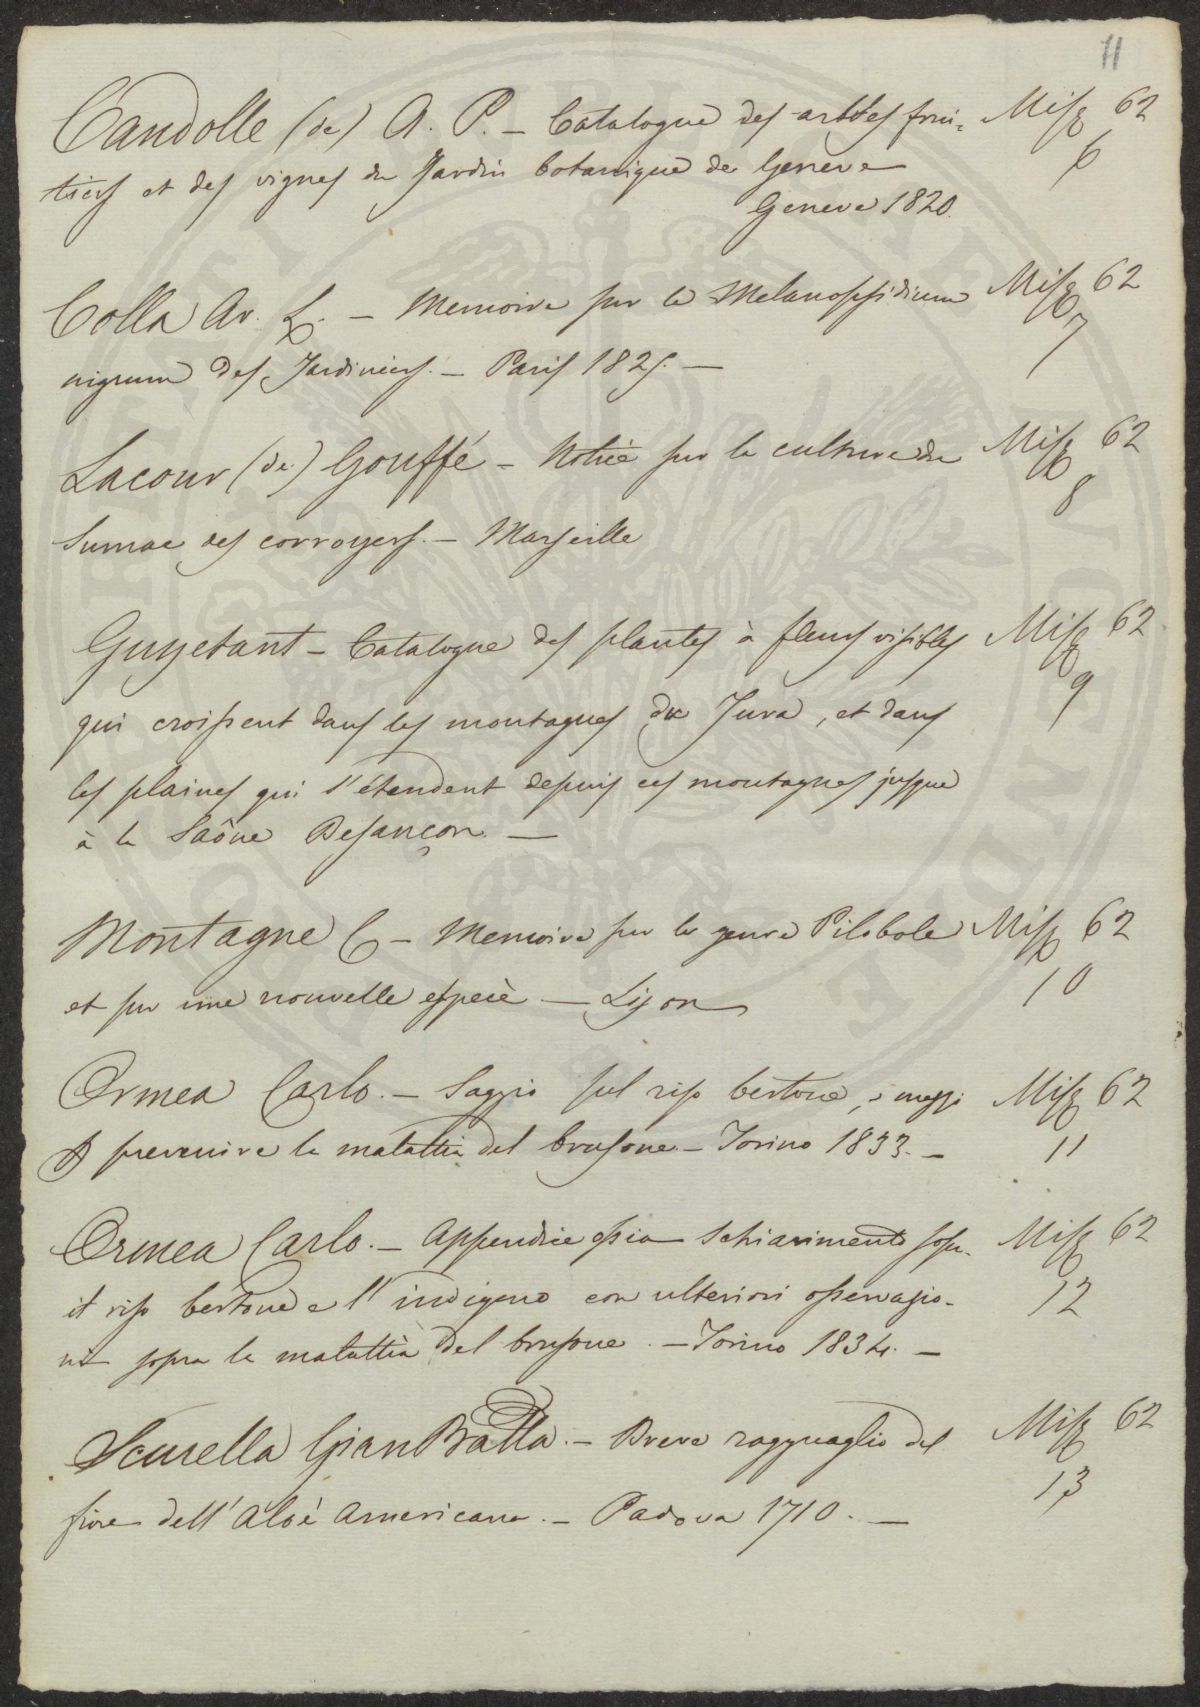 11
Candolle (de) A. P. – Catalogue des arbres frui= Misc 62
tiers et des vignes du Jardin botanique de Geneve 6
Geneve 1820.
Colla Av. L. – Memoire sur le Melanossidium Misc 62
nigrum des Jardiniers. – Paris 1825. – 7
Lacour (de) Gouffé – Notice sur la culture du Misc 62
Sumac des corroyers. – Marseille 8
Guyetant – Catalogue des plantes à fleurs visibles Misc 62
qui croissent dans les montagnes du Jura, et dans 9
les plaines qui s'étendent depuis ces montagnes jusque
à la Saône Besançon. –
Montagne C – Memoire sur le genre Pilobole Misc 62
et sur une nouvelle espece – Lyon 10
Ormea Carlo. – Saggio sul riso bertone, e mezzi Misc 62
A prevenire la malattia del brusone. – Torino 1833. – 11
Ormea Carlo. – Appendice ossia Schiarimento sopr. Misc 62
il riso bertone e l'indigeno con ulteriori osservazio- 12
ni sopra la malattia del brusone. – Torino 1834. –
Scarella Gian Batta. – Breve ragguaglio del Misc 62
fiore dell'Aloè Americana. – Padova 1710. – 13